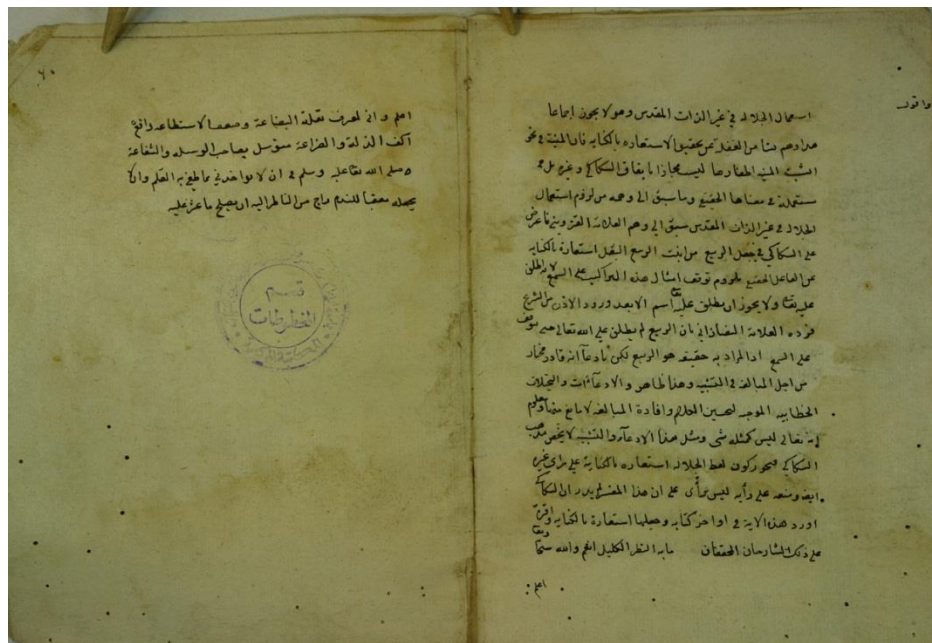 استعمال الجلاله في غير الذات المقدس وهو لا يجوز اجماعا
واقول
هذا وهم نشا من الغفلة عن تحقيق الاستعاره بالكنايه فان المنية في نحو
انشبت المنيه اظفارها ليست مجازا باتفاق السكاكي وغيره بل هي
مستعملة في معناها الحقيقي وما سبق الى وهمه من لزوم استعمال
الجلاله في غير الذات المقدس سبق الى وهم العلامة القزويني فاعترض
على السكاكي في جعل الربيع من انبت الربيع البقل استعارة بالكنايه
عن الفاعل الحقيقي بلزوم توقف امثال هذه التراكيب على السمع لانه لا يطلق
عليه تعا ولا يجوز ان يطلق عليه تعا اسم الا بعد ورود الاذن من الشرع
فرده العلامة التفتازاني بان الربيع لم يطلق على الله تعالى حتى يتوقف
على السمع اذ المراد به حقيقة هو الربيع لكن بادعآ انه قادر مختار
من اجل المبالغه في التشبيه وهذا ظاهر والادعآءات والتخيلات
الخطابيه الموجبه لتحسين الكلام وافادة المبالغه لا مانع منها ومعلوم
انه تعالى ليس كمثله شي ومثل هذا الادعآء والتشبيه لا يختص بمذهب
السكاكي فتجويز كون لفظ الجلاله استعاره بالكناية على راى غيره
ومنعه على رأيه ليس برأى على ان هذا المعترض لم يدر ان السكاكي
اورد هذه الاية في اواخر كتابه وجعلها استعارة بالكنايه واقره
على ذلك الشارحان المحققان والله سبحا وتعا
اعلم
٤٠
اعلم واني لمعرف بقلة البضاعة وضعف الاستطاعه رافع
اكف الذلة والضراعة متوسل بصاحب الوسيله والشفاعة
صلى الله تعا عليه وسلم في ان لا يواخذني بما طغى به القلم وان لا
يجعله معقبا للندم راج من الناظر اليه ان يصلح ما عثر عليه
قسم
المخطوطات